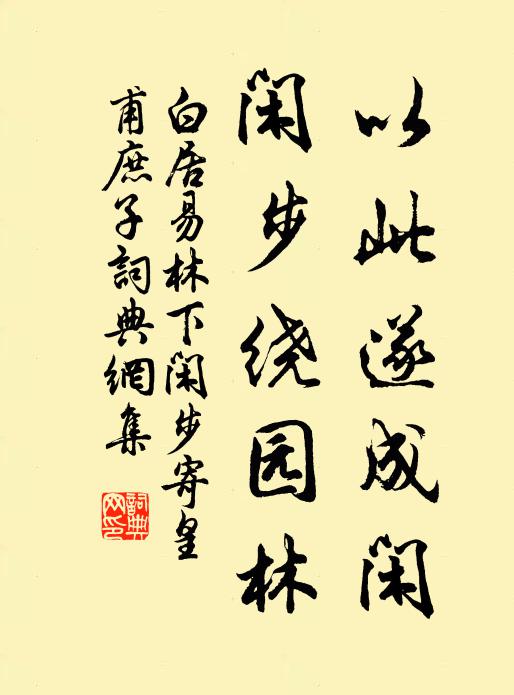 以此遂成闲
闲步绕园林
白居易林下闲步寄皇
甫庶子詞典網集
詞典
网印